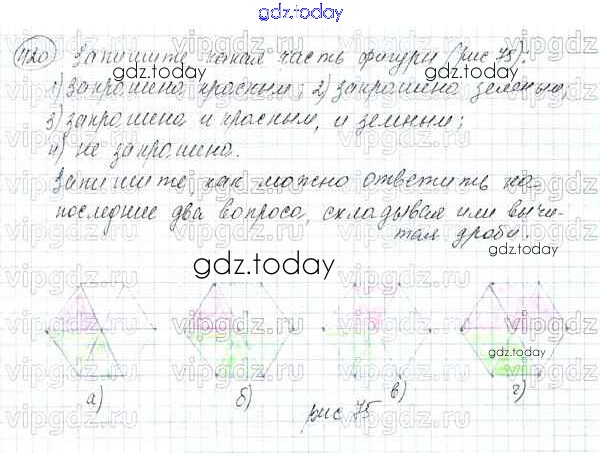 gdz.today
1120 Запишите, какая часть фигуры (рис 75):
1) закрашена красным; 2) закрашена зеленым;
gdz.today
3) закрашена и красным, и зеленым;
4) не закрашена.
Запишите, как можно ответить на
последние два вопроса, складывая или вычи-
тая дроби.
vipgdz.ru vipgdz.ru vipgdz.ru vipgdz.ru
gdz.today
gdz.today
а) б) в) г)
рис 75